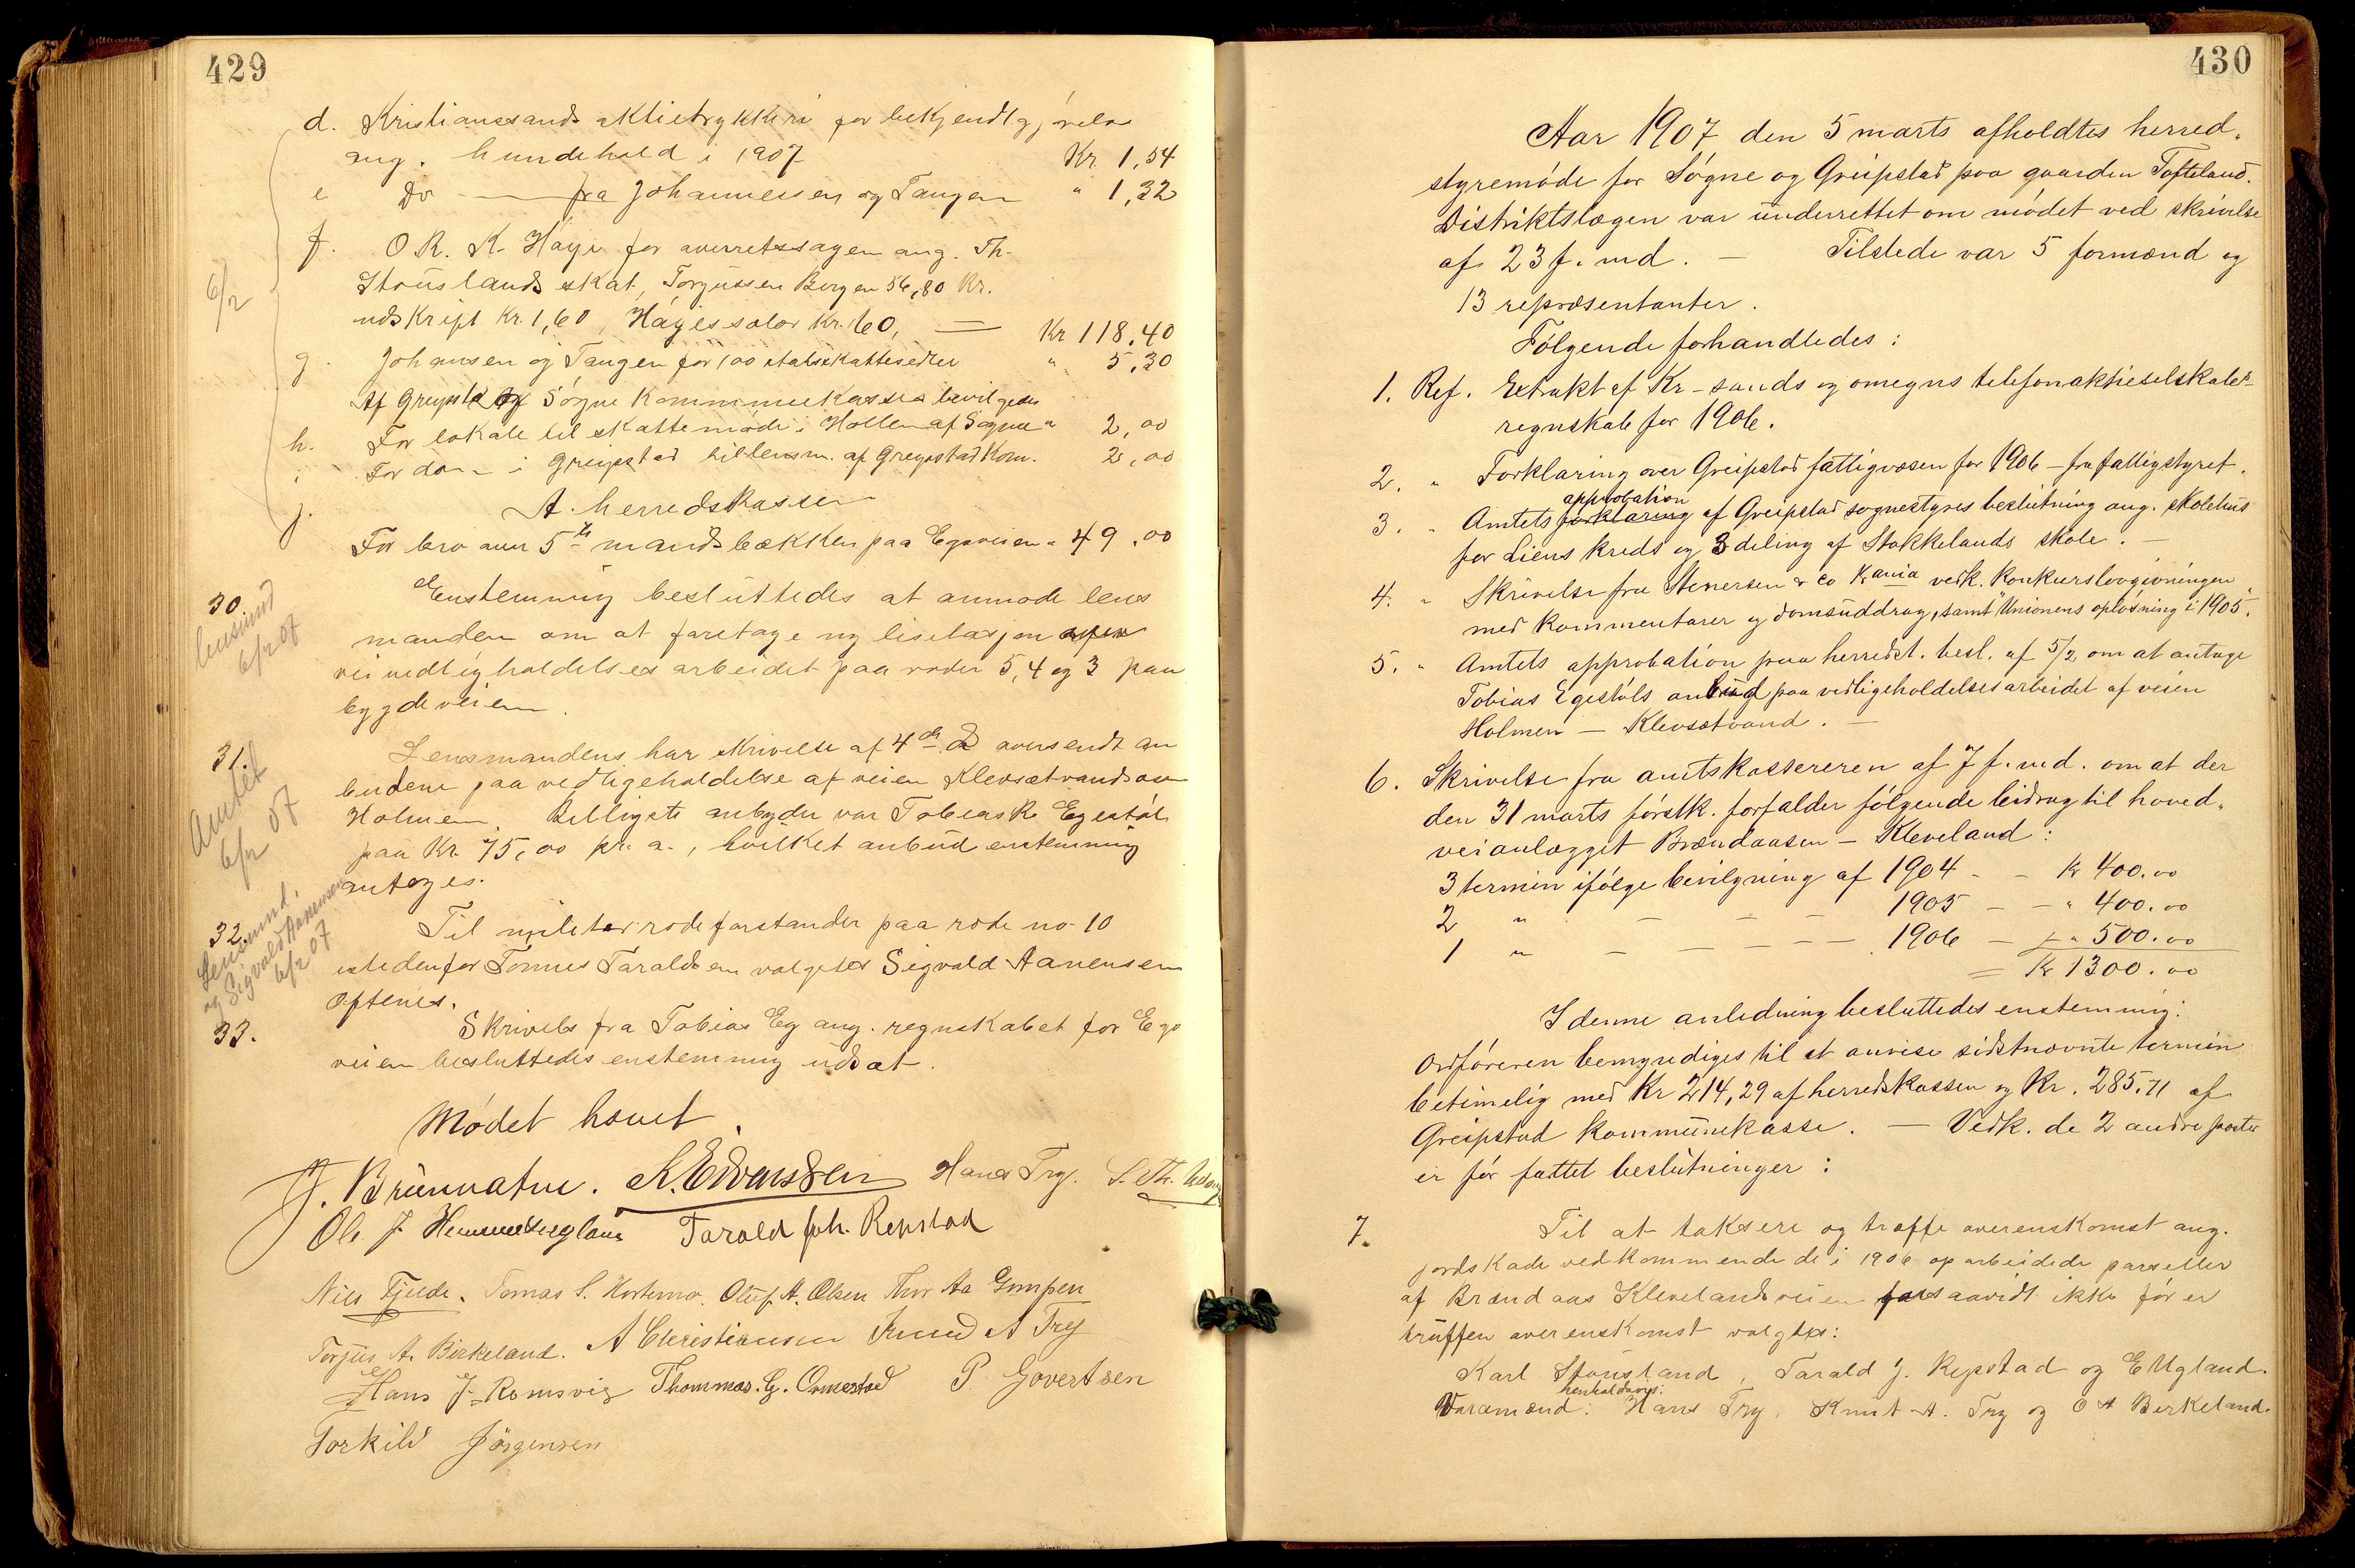 429
d. Kristianssands aktietrykkeri for bekjendtgjørelse
ang. hundehold i 1907 Kr. 1,54
e Do — fra Johannessen og Tangen " 1,32
f. O.R. K. Håye for overretssagen ang. Th.
Stouslands skat, Torgussen Bergen 56,80 Kr.
udskrift Kr. 1,60, Håyes salær Kr. 60, — Kr 118.40
6/2
g. Johansen og Tangen for 100 statsskattesedler " 5,30
Af Greipstad og Søgne Kommunekasse bevilgedes
h. For lokale til skattemøde i Høllen af Søgne " 2,00
i For do — i Greipstad til lensm. af Greipstad Kom. 2,00
j. A. herredskassen
For bro over 5te mandsbækken paa Egsveien " 49.00
30.
lensmand
6/2 07
Enstemmig besluttedes at anmode lens
manden om at foretage ny lisitasjon over
veivedligholdelses arbeidet paa roder 5, 4 og 3 paa
bygdeveien.
31.
Amtet
6/2 07
Lensmandens har skrivelse af 4de ds oversendt an
budene paa vedligeholdelse af veien Klevsætvandsom
Holmen. Billigste anbyder var Tobias K. Egestøl
paa Kr. 75,00 pr. a., hvilket anbud enstemmig
antoges.
32.
Lensmand.
og Sigvald Aanensen
6/2 07
Til militær rodeforstander paa rode no. 10
istedenfor Tomes Taraldsen valgtes Sigvald Aanensen
Oftenes.
33.
Skrivels fra Tobias Eg ang. regnskabet for Egs
veien besluttedes enstemmig udsat.
Mødet hævet.
J. Brunvatne. K. Edvardsen Hans Try.
Ole J. Hemmestegland Tarald Joh. Repstad
Nils Fjelde. Tomas S. Hortemo. Oluf A. Olsen Thor Aa Gumpen
Torjus A. Birkeland. A Christiansen Knud A Try
Hans J. Romsvig Thommas. G. Ormestad P Govertsen
Torkild Jörgensen
430
Aar 1907 den 5 marts afholdtes herred-
styremøde for Søgne og Greipstad paa gaarden Tofteland.
Distriktslægen var underrettet om mødet ved skrivelse
af 23 f. md. — Tilstede var 5 formænd og
13 repræsentanter.
Følgende forhandledes:
1. Ref. Extrakt af Kr-sands og omegns telefonaktieselskabs
regnskab for 1906.
2. " Forklaring over Greipstad fattigvæsen for 1906 – fra fattigstyret.
approbation
3. " Amtets forklaring af Greipstad sognestyres beslutning ang. skolehus
for Liens kreds og 3 deling af Stokkelands skole. —
4. " Skrivelse fra Stenersen & Co Krania vedk. Konkurslovgivningen
med kommentarer og domsuddrag, samt "Unionens opløsning i 1905".
5. " Amtets approbation paa herredst. besl. af 5/2 om at antage
Tobias Egestøls anbud paa vedligeholdelsesarbeidet af veien
Holmen — Klevsætvand. —
6. Skrivelse fra amtskassereren af 7 f. md. om at der
den 31 marts førstk. forfalder følgende bidrag til hoved-
veianlægget Brændaasen – Kleveland:
3 termin ifølge bevilgning af 1904 - - Kr 400.00
2 " — — — 1905 - - " 400.00
1 " — — — — 1906 - - " 500.00
= Kr 1300.00
I denne anledning besluttedes enstemmig:
Ordføreren bemyndiges til at anvise sidstnævnte termin
betimelig med Kr 214,29 af herredskassen og Kr. 285.71 af
Greipstad kommunekasse. — Vedk. de 2 andre poster
er før fattet beslutninger:
7. Til at taksere og træffe overenskomst ang.
jordskade vedkommende de i 1906 oparbeidede parseller
af Brændaas Klevelandsveien forsaavidt ikke før er
truffen overenskomst valgtes:
Karl Stousland, Tarald J. Repstad og E Ugland.
henholdsvis:
Varamænd: Hans Try, Knut A. Try og O A Birkeland.